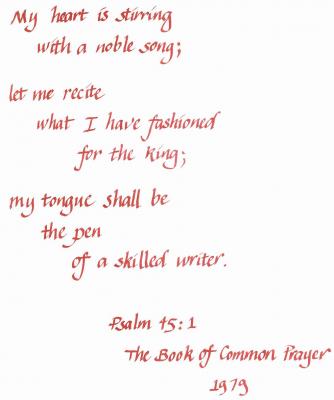 My heart is stirring
with a noble song;
let me recite
what I have fashioned
for the king;
my tongue shall be
the pen
of a skilled writer.
Psalm 45:1
The Book of Common Prayer
1979